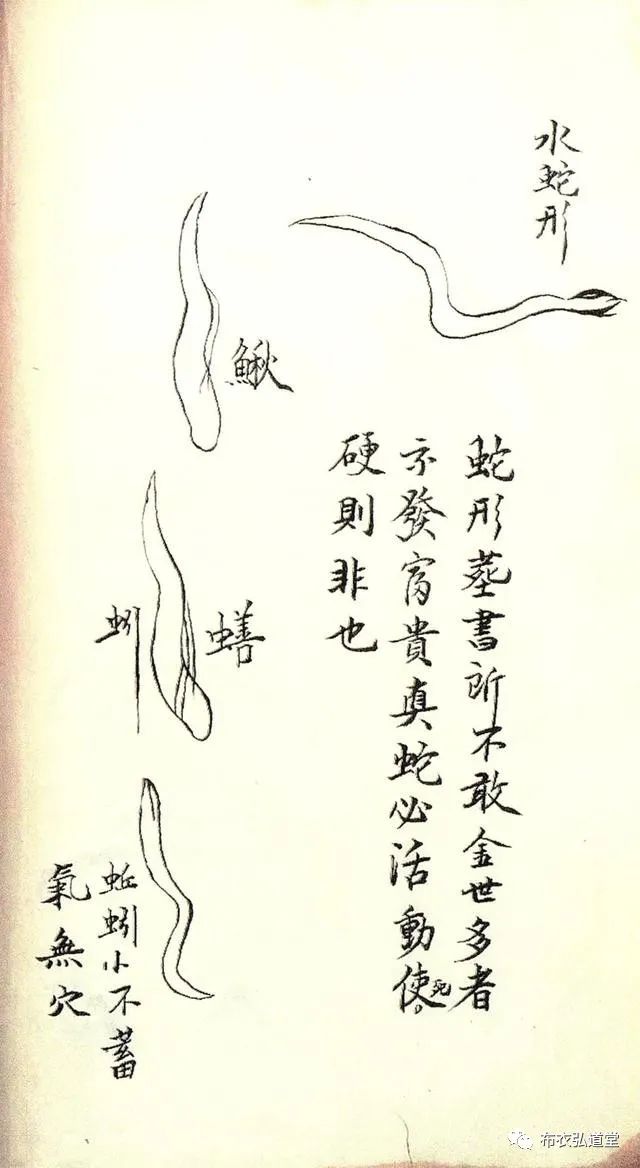 水蛇形
蛇形塟書所不敢金世多者
不發富貴真蛇必活動使死
硬則非也
鰍
蟮
蚓
蚯蚓小不蓄
氣無穴
布衣弘道堂